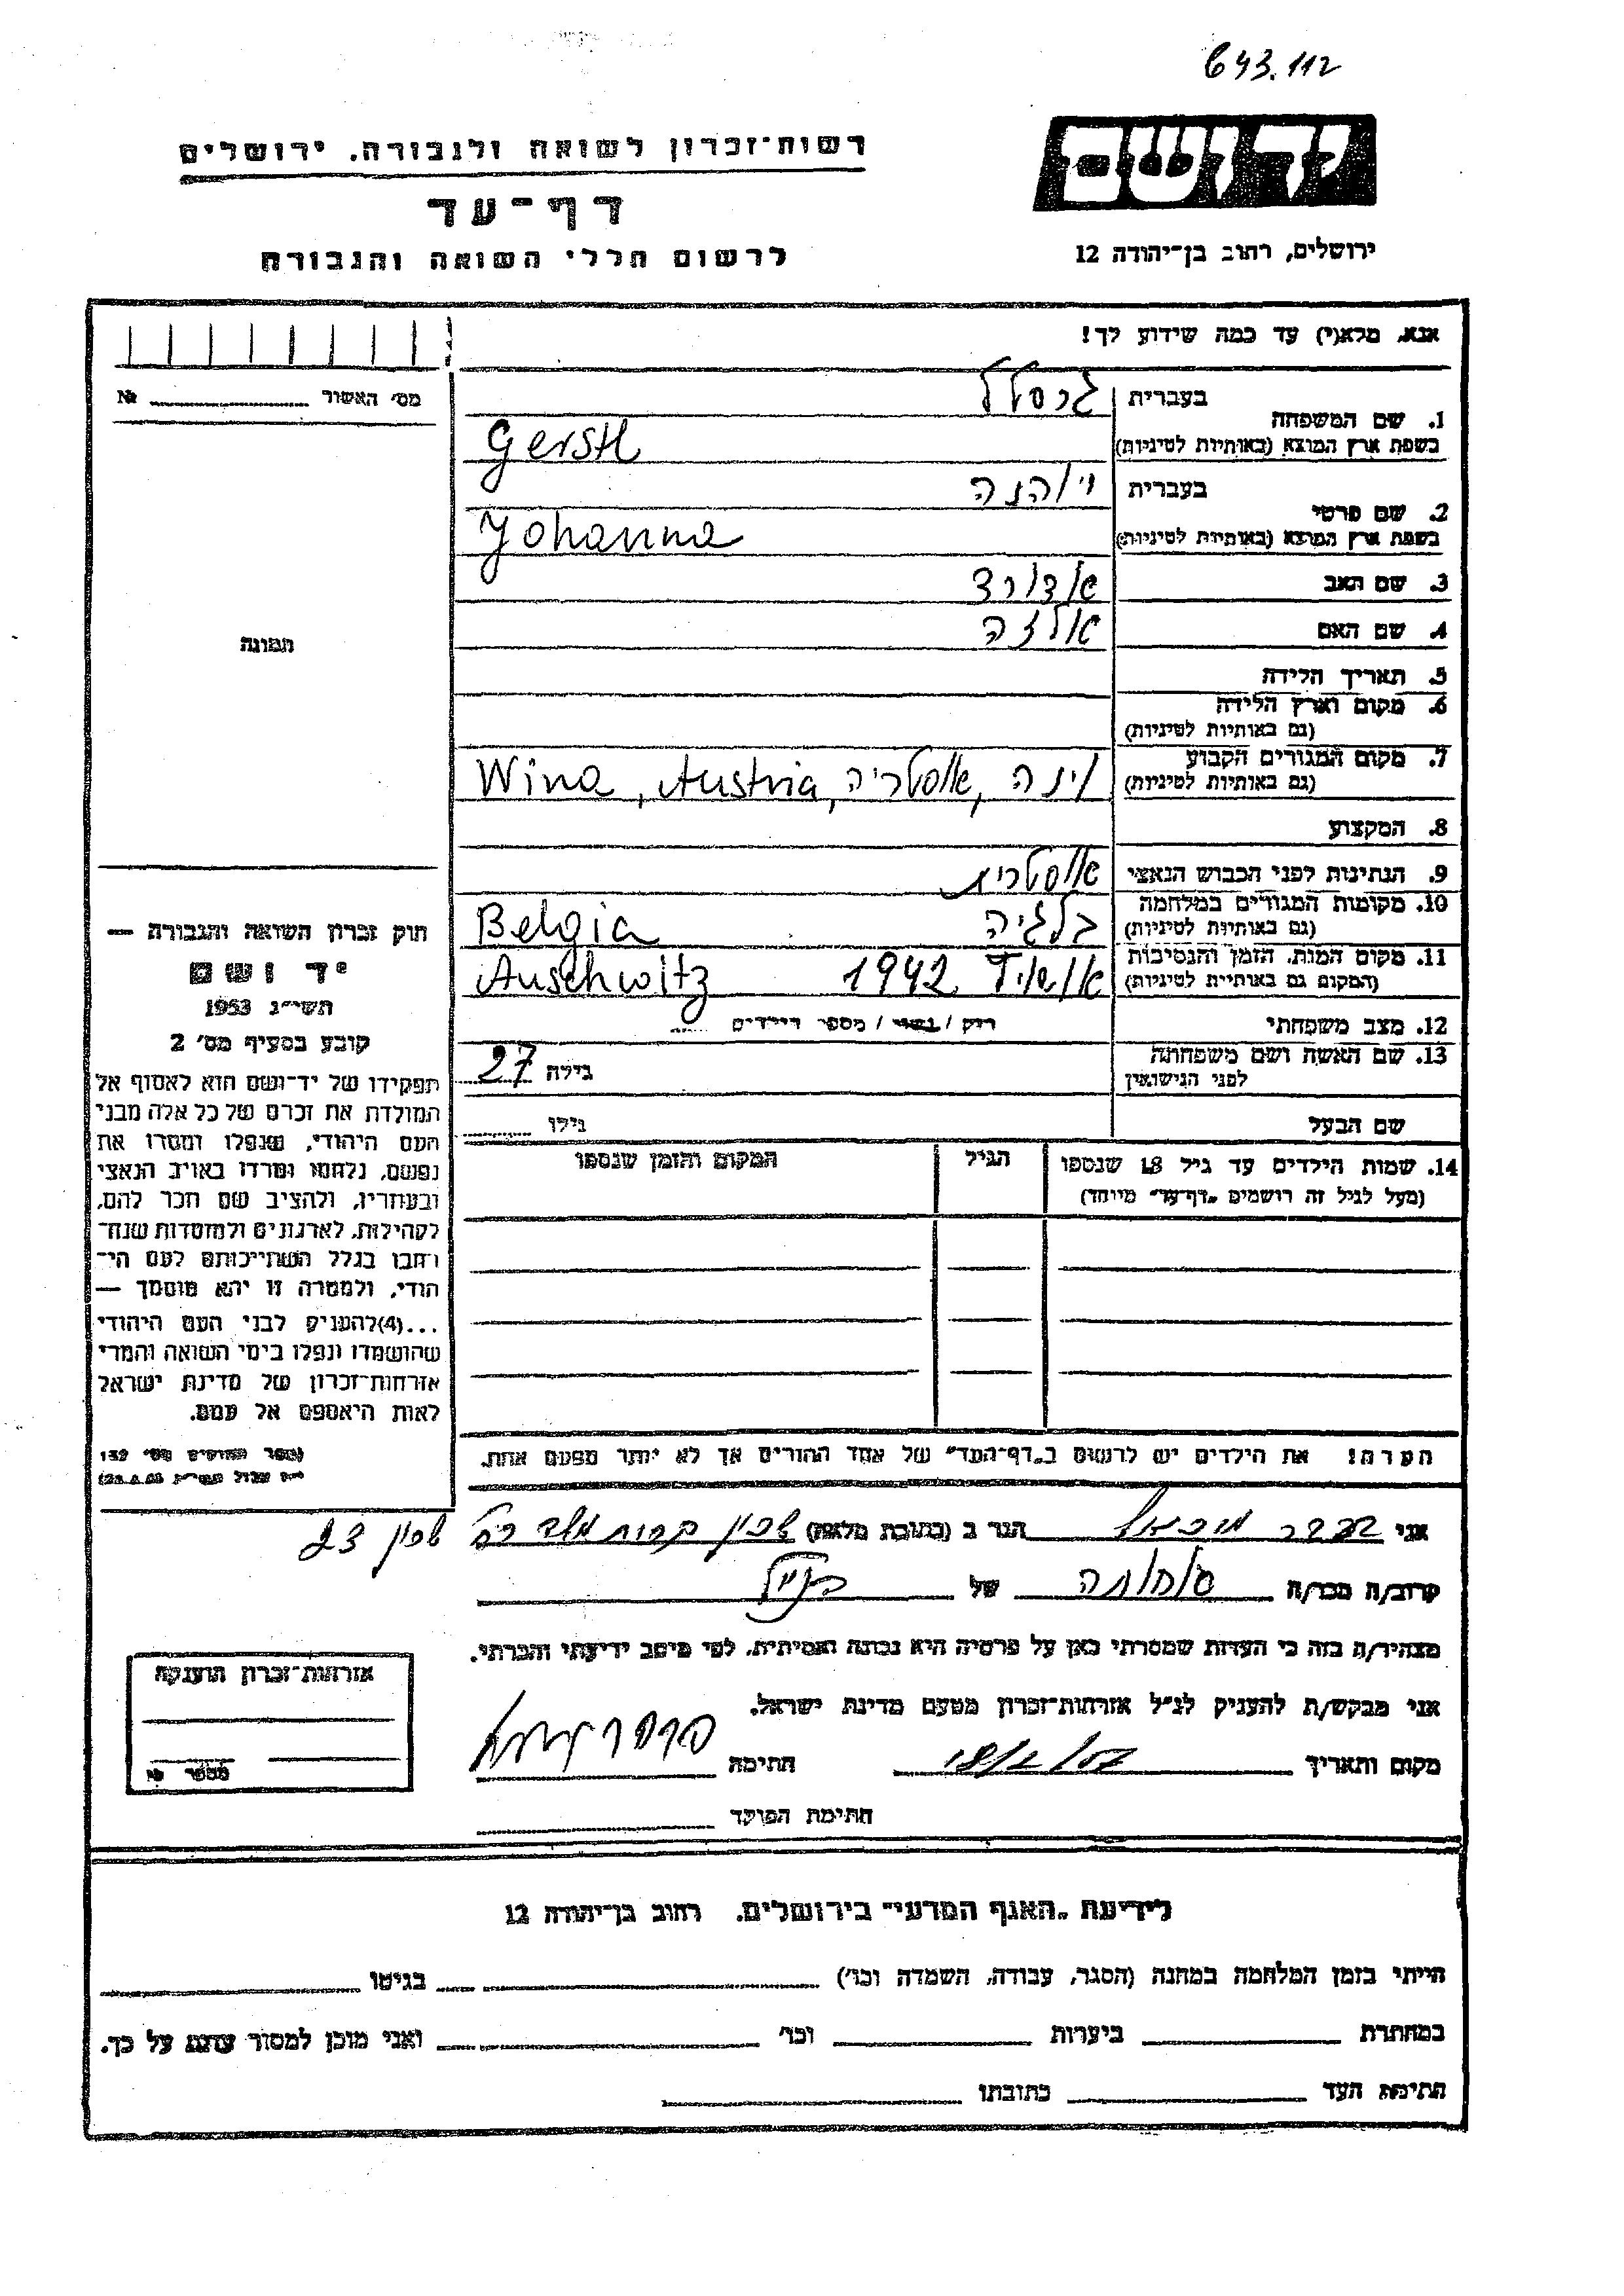 643.112
יד ושם
רשות־זכרון לשואה ולגבורה, ירושלים
דף־עד
לרשום חללי השואה והגבורה
ירושלים, רחוב בן־יהודה 12
אנא, מלא(י) עד כמה שידוע לך!
מס׳ האשור № 
1. שם המשפחה
בעברית גרסטל
בשפת ארץ המוצא (באותיות לטיניות) Gerstl
2. שם פרטי
בעברית יוהנה
בשפת ארץ המוצא (באותיות לטיניות) Yohanna
3. שם האב אדוארד
4. שם האם אלזה
תמונה
5. תאריך הלידה
6. מקום וארץ הלידה
(גם באותיות לטיניות)
7. מקום המגורים הקבוע
(גם באותיות לטיניות)
וינה, אוסטריה, Wina, Austria
8. המקצוע
9. הנתינות לפני הכבוש הנאצי אוסטרית
10. מקומות המגורים במלחמה
(גם באותיות לטיניות)
בלגיה Belgia
11. מקום המות, הזמן והנסיבות
(המקום גם באותיות לטיניות)
1942 Auschwitz
12. מצב משפחתי רוק / נשוי / מספר הילדים
13. שם האשה ושם משפחתה
לפני הנישואין
גילה 27
שם הבעל גילו
14. שמות הילדים עד גיל 18 שנספו
(מעל לגיל זה רושמים „דף־עד” מיוחד)
הגיל
המקום והזמן שנספו
חוק זכרון השואה והגבורה —
יד ושם
תשי״ג 1953
קובע בסעיף מס׳ 2
תפקידו של יד־ושם הוא לאסוף אל
המולדת את זכרם של כל אלה מבני
העם היהודי, שנפלו ומסרו את
נפשם, נלחמו ומרדו באויב הנאצי
ובעוזריו, ולהציב שם וזכר להם,
לקהילות, לארגונים ולמוסדות שנח־
רבו בגלל השתייכותם לעם הי־
הודי, ולמטרה זו יהא מוסמך —
...(4) להעניק לבני העם היהודי
שהושמדו ונפלו בימי השואה והמרי
אזרחות־זכרון של מדינת ישראל
לאות היאספם אל עמם.
(ספר החוקים מס׳ 132
הערה: את הילדים יש לרשום ב„דף־העד” של אחד ההורים אך לא יותר מפעם אחת.
אני מיכאל הגר ב (כתובת מלאה)
קרוב/ה מכר/ה של
מצהיר/ה בזה כי העדות שמסרתי כאן על פרטיה היא נכונה ואמיתית, לפי מיטב ידיעתי והכרתי.
אני מבקש/ת להעניק לנ״ל אזרחות־זכרון מטעם מדינת ישראל.
מקום ותאריך חתימה
חתימת הפוקד
אזרחות־זכרון הוענקה
מספר
לידיעת „האגף המדעי” בירושלים, רחוב בן־יהודה 12
הייתי בזמן המלחמה במחנה (הסגר, עבודה, השמדה וכו׳) בגיטו
במחתרת ביערות וכו׳ ואני מוכן למסור עדות על כך.
חתימת העד כתובתו